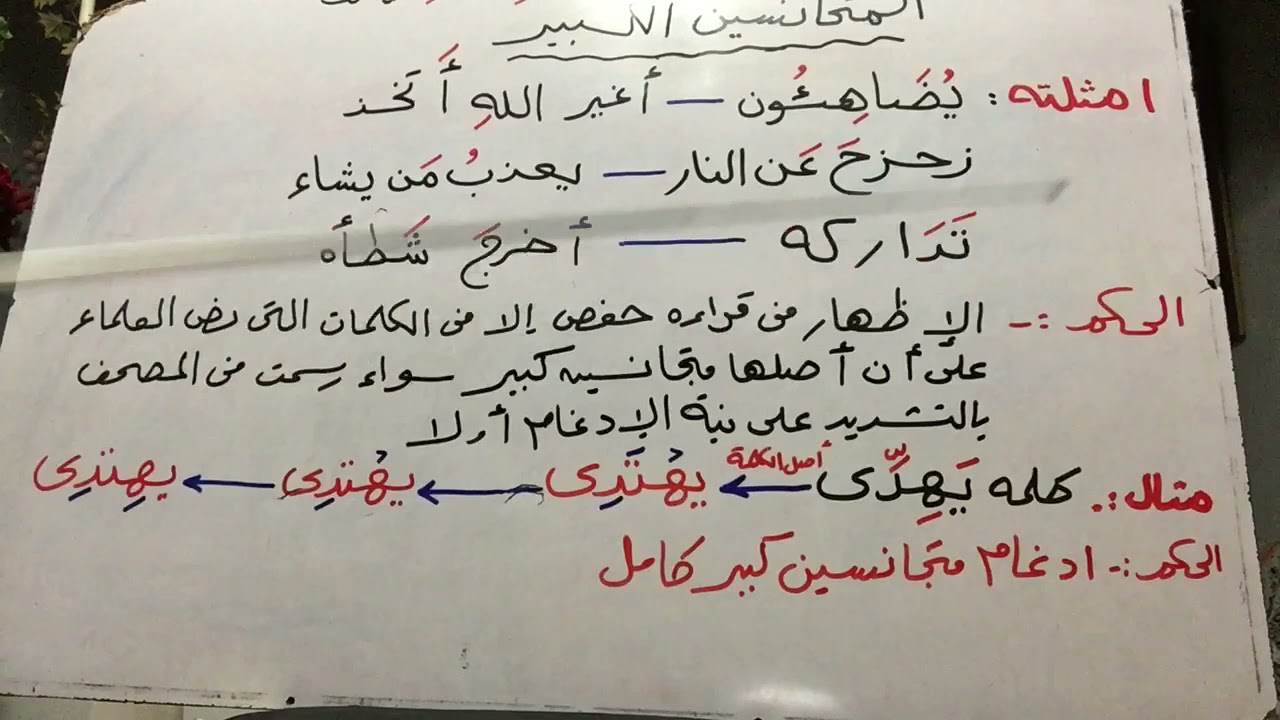 المتجانسين الكبير
امثلته : يُضَاهِئُون — أغير اللهِ أَتَخذ
زحزحَ عَن النار — يعذبُ مَن يشاء
تَدَاركه — أخرجَ شَطأَه
الحكم :- الإظهار فى قراءه حفص إلا فى الكلمات التى نص العلماء
على أن أصلها متجانسين كبير سواء رسمت فى المصحف
بالتشديد على نية الإدغام أولا
مثال :. كلمه يَهِدِّى ← أصل الكلمة يهْتَدِى ← يهْتدِى ← يهِتدِى
الحكم :- ادغام متجانسين كبير كامل